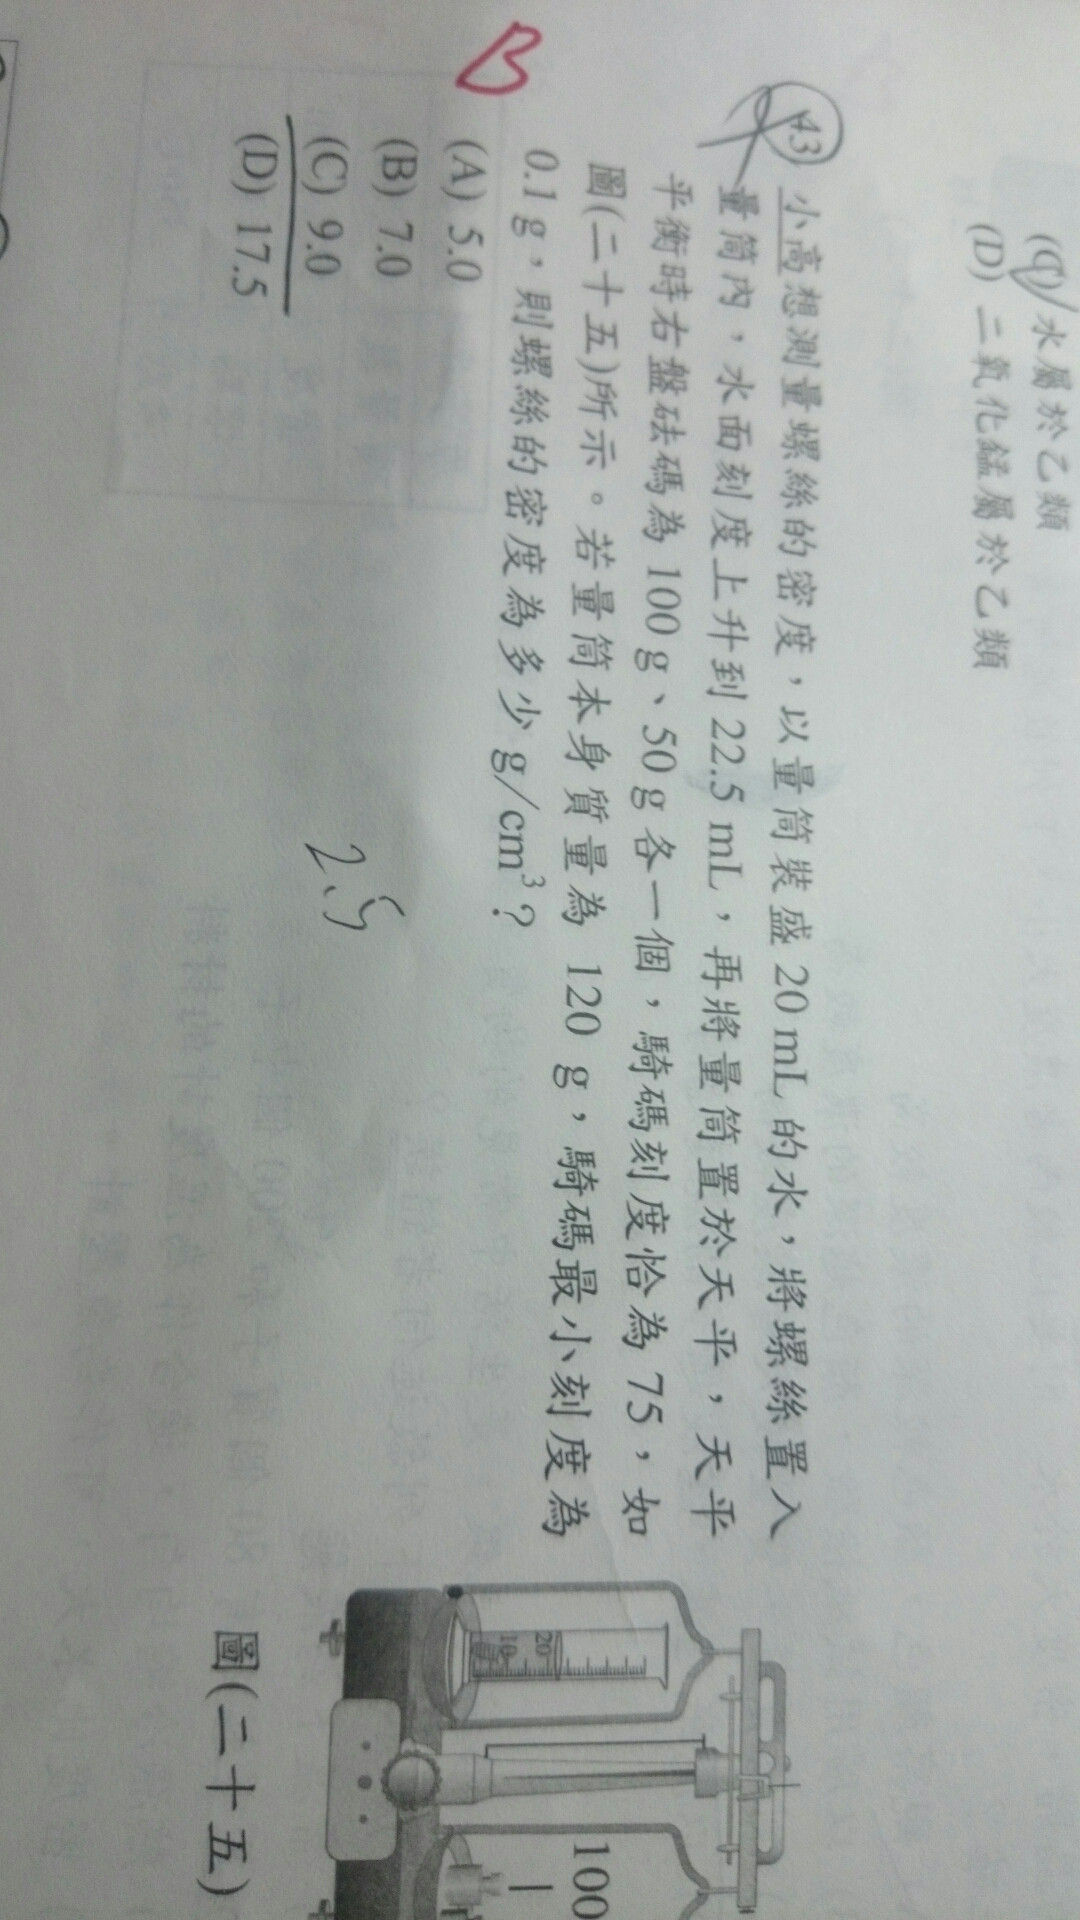 (C) 水屬於乙類
(D) 二氧化錳屬於乙類
B
43 小高想測量螺絲的密度，以量筒裝盛 20 mL 的水，將螺絲置入
量筒內，水面刻度上升到 22.5 mL，再將量筒置於天平，天平
平衡時右盤砝碼為 100 g、50 g 各一個，騎碼刻度恰為 75，如
圖(二十五)所示。若量筒本身質量為 120 g，騎碼最小刻度為
0.1 g，則螺絲的密度為多少 g/cm³？
(A) 5.0
(B) 7.0
(C) 9.0
(D) 17.5
2.5
20
10
100
圖(二十五)